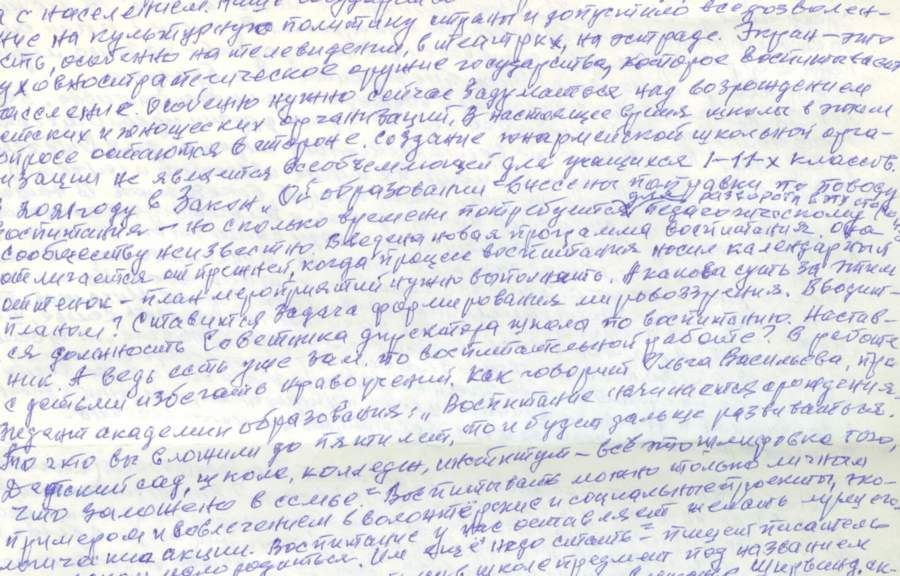 а с населением.
ние на культурную политику страны и допустило вседозволен-
сть, особенно на телевидении, в театрах, на эстраде. Экран – это
уховностратегическое оружие государства, которое воспитывает
население. Особенно нужно сейчас задуматься над возрождением
етских и юношеских организаций. В настоящее время школы в этом
опросе остаются в стороне. Создание юнармейской школьной орга-
изации не является всеобъемлющей для учащихся 1-11-х классов.
В 2021 году в Закон „Об образовании" внесены поправки по поводу
воспитания – но сколько времени потребуется для разворота в эту сторону педагогическому
сообществу неизвестно. Введена новая программа воспитания. Она
отличается от прежней, когда процесс воспитания носил календарный
оттенок – план мероприятий нужно выполнить. А какова суть за этим
планом? Ставится задача формирования мировоззрения. Вводит-
ся должность Советника директора школы по воспитанию. Настав-
ник. А ведь есть уже зам. по воспитательной работе? В работе
с детьми избегать нравоучений. Как говорит Ольга Васильева, пре-
зидент академии образования: „ Воспитание начинается с рождения.
То что вы вложили до пяти лет, то и будет дальше развиваться.
Детский сад, школа, колледж, институт – всё это шлифовка того,
что заложено в семье". Воспитывать можно только личным
примером и вовлечением в волонтерские и социальные проекты, эко-
логические акции. Воспитание у нас оставляет желать лучшего.
родиться. Им ещё надо стать" – пишет писатель
школе предмет под названием
Ширвиндт, ск-